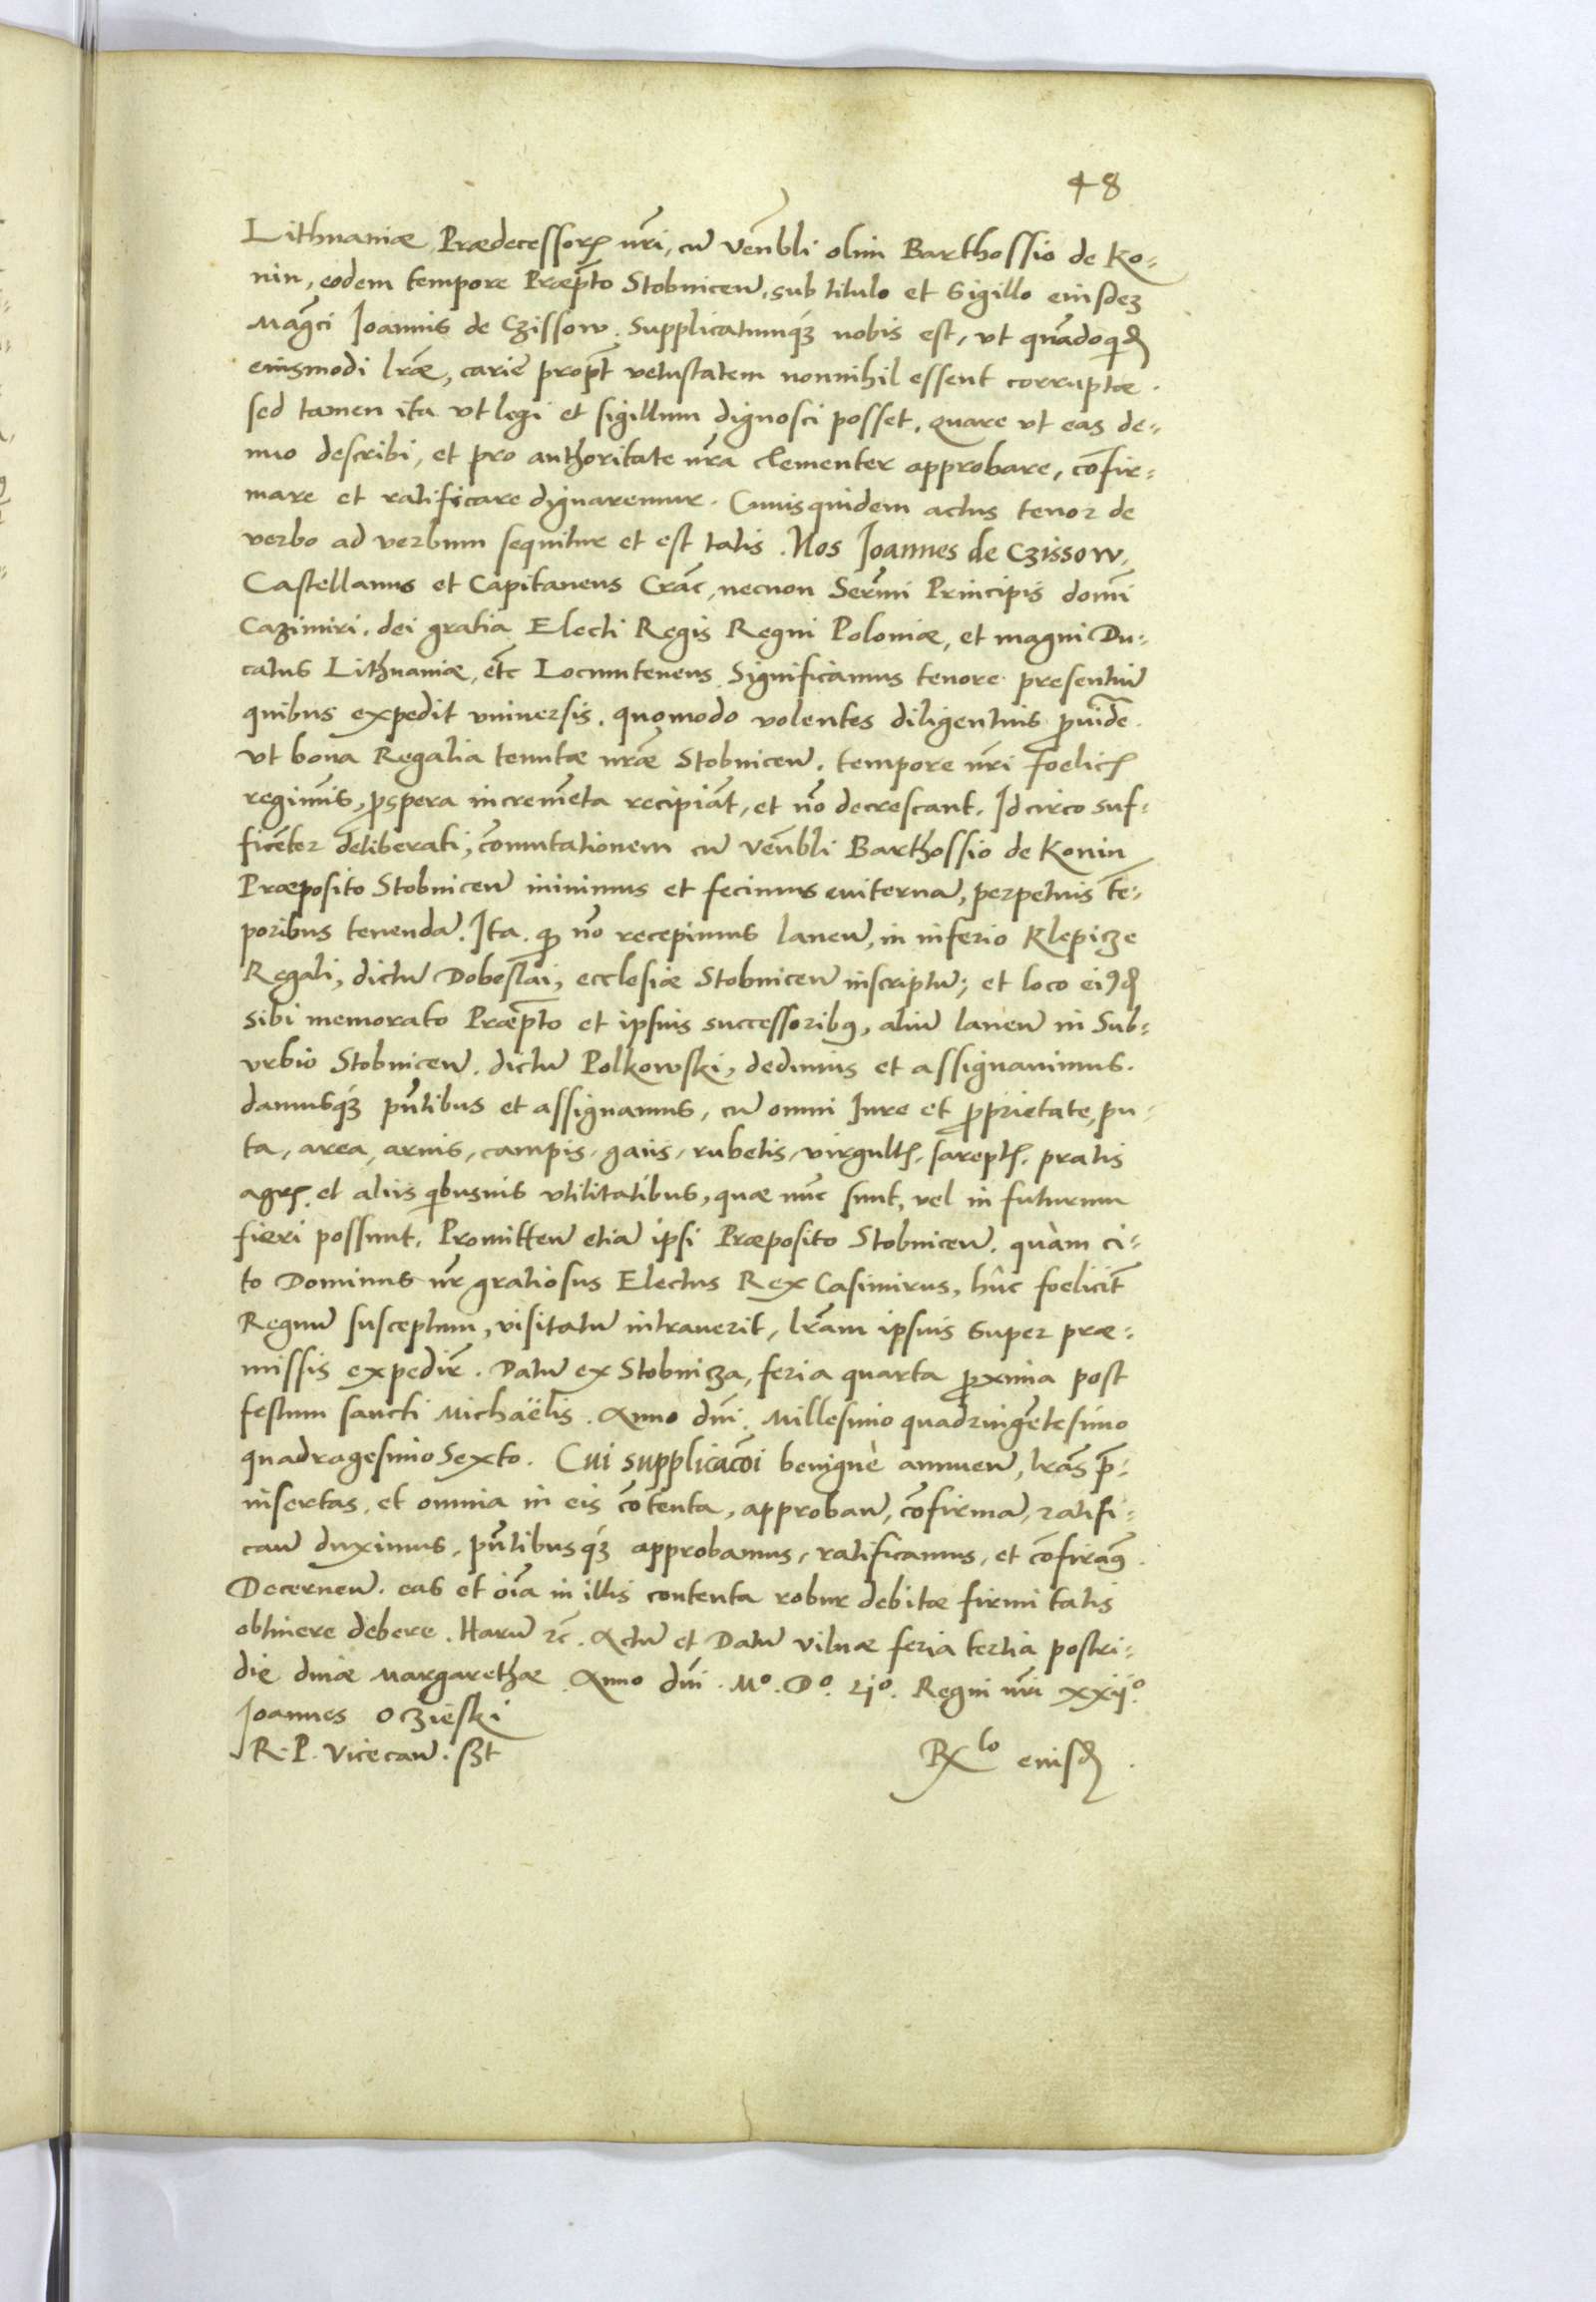 48
Lithuaniæ Prædecessorꝭ nr̄i, cū Venēbli olim Barthossio de Ko-
nin, eodem tempore Præp̄to Stobnicen̄, sub titulo et Sigillo eiusdeꝫ
Magc̄i Ioannis de Czissow. Supplicatumqꝫ nobis est, vt qn̄adoqꝺ
eiusmodi lrǣ, cariē propt̄ vetustatem nonnihil essent corruptæ.
sed tamen ita vt legi et sigillum dignosci posset, quare vt eas de-
nuo describi, et pro authoritate nr̄a clementer approbare, cōfir-
mare et ratificare dignaremur. Cuius quidem actus tenor de
verbo ad verbum sequitur et est talis. Nos Ioannes de Czissow,
Castellanus et Capitaneus Crac̄, necnon Serm̄i Principis domi̅
Cazimiri, dei gratia Electi Regis Regni Poloniæ, et magni Du-
catus Lithuaniæ, et̄c Locumtenens. Significamus tenore presentiū
quibus expedit vniuersis. quomodo volentes diligentius ꝓuidē.
vt bona Regalia tenutæ nrǣ Stobnicen̄. tempore nr̄i foelicꝭ
regiminis, ꝓspera incremēta recipiāt, et nō decrescant. Idcirco suf-
ficēter deliberati, cōmutationem cū Venēbli Barthossio de Konin
Præposito Stobnicen̄ iniuimus et fecimus euiternā, perpetuis tē-
poribus tenendā. Ita. ꝙ nō recepimus laneū, in inferio Klepicze
Regali, dictū Dobeslai, ecclesiæ Stobnicen̄ inscriptū; et loco ei9ꝺ
sibi memorato Præp̄to et ipsius successoribꝰ, aliū laneū in Sub-
vrbio Stobnicen̄. dictū Polkowski, dedimus et assignauimus.
damusqꝫ pn̄tibus et assignamus, cū omni Iure et ꝓprietate, pu-
ta, area, aruis, campis, gaiis, rubetis, virgultꝭ, sareptꝭ, pratis
agrꝭ. et aliis qibusuis vtilitatibus, quæ nūc sunt, vel in futurum
fieri possunt. Promitten̄ etiā ipsi Præposito Stobnicen̄. quàm ci-
to Dominus nr̄ gratiosus Electus Rex Casimirus, hūc foelicit̄
Regnū susceptum, visitatū intrauerit, lr̄am ipsius super præ-
missis expedir̄. Datū ex Stobnicza, feria quarta ꝓxima post
festum sancti Michaëlis. Anno dn̄i. Millesimo quadringētesimo
quadragesimo Sexto. Cui supplicacōi benignè annuen̄, lr̄as p̄-
insertas, et omnia in eis cōtenta, approban̄, cōfirmā, ratifi-
can̄ duximus, pn̄tibusqꝫ approbamus, ratificamus, et cōfirāꝰ.
Decernen̄. eas et oīa in illis contenta robur debitæ firmitatis
obtinere debere. Harū ꝛc̄. Actū et Datū Vilnæ feria tertia postri-
die diuæ Margarethæ. Anno dn̄i. Mº. Dº. Lijº. Regni nr̄i xxijº.
Ioannes Oczieski
R. P. Vicecan̄. sßt
Rx lo eiusꝺ.